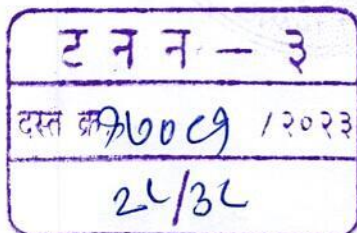 ट न न - ३
दस्त क्र. १७०८१ /२०२३
२८/३८